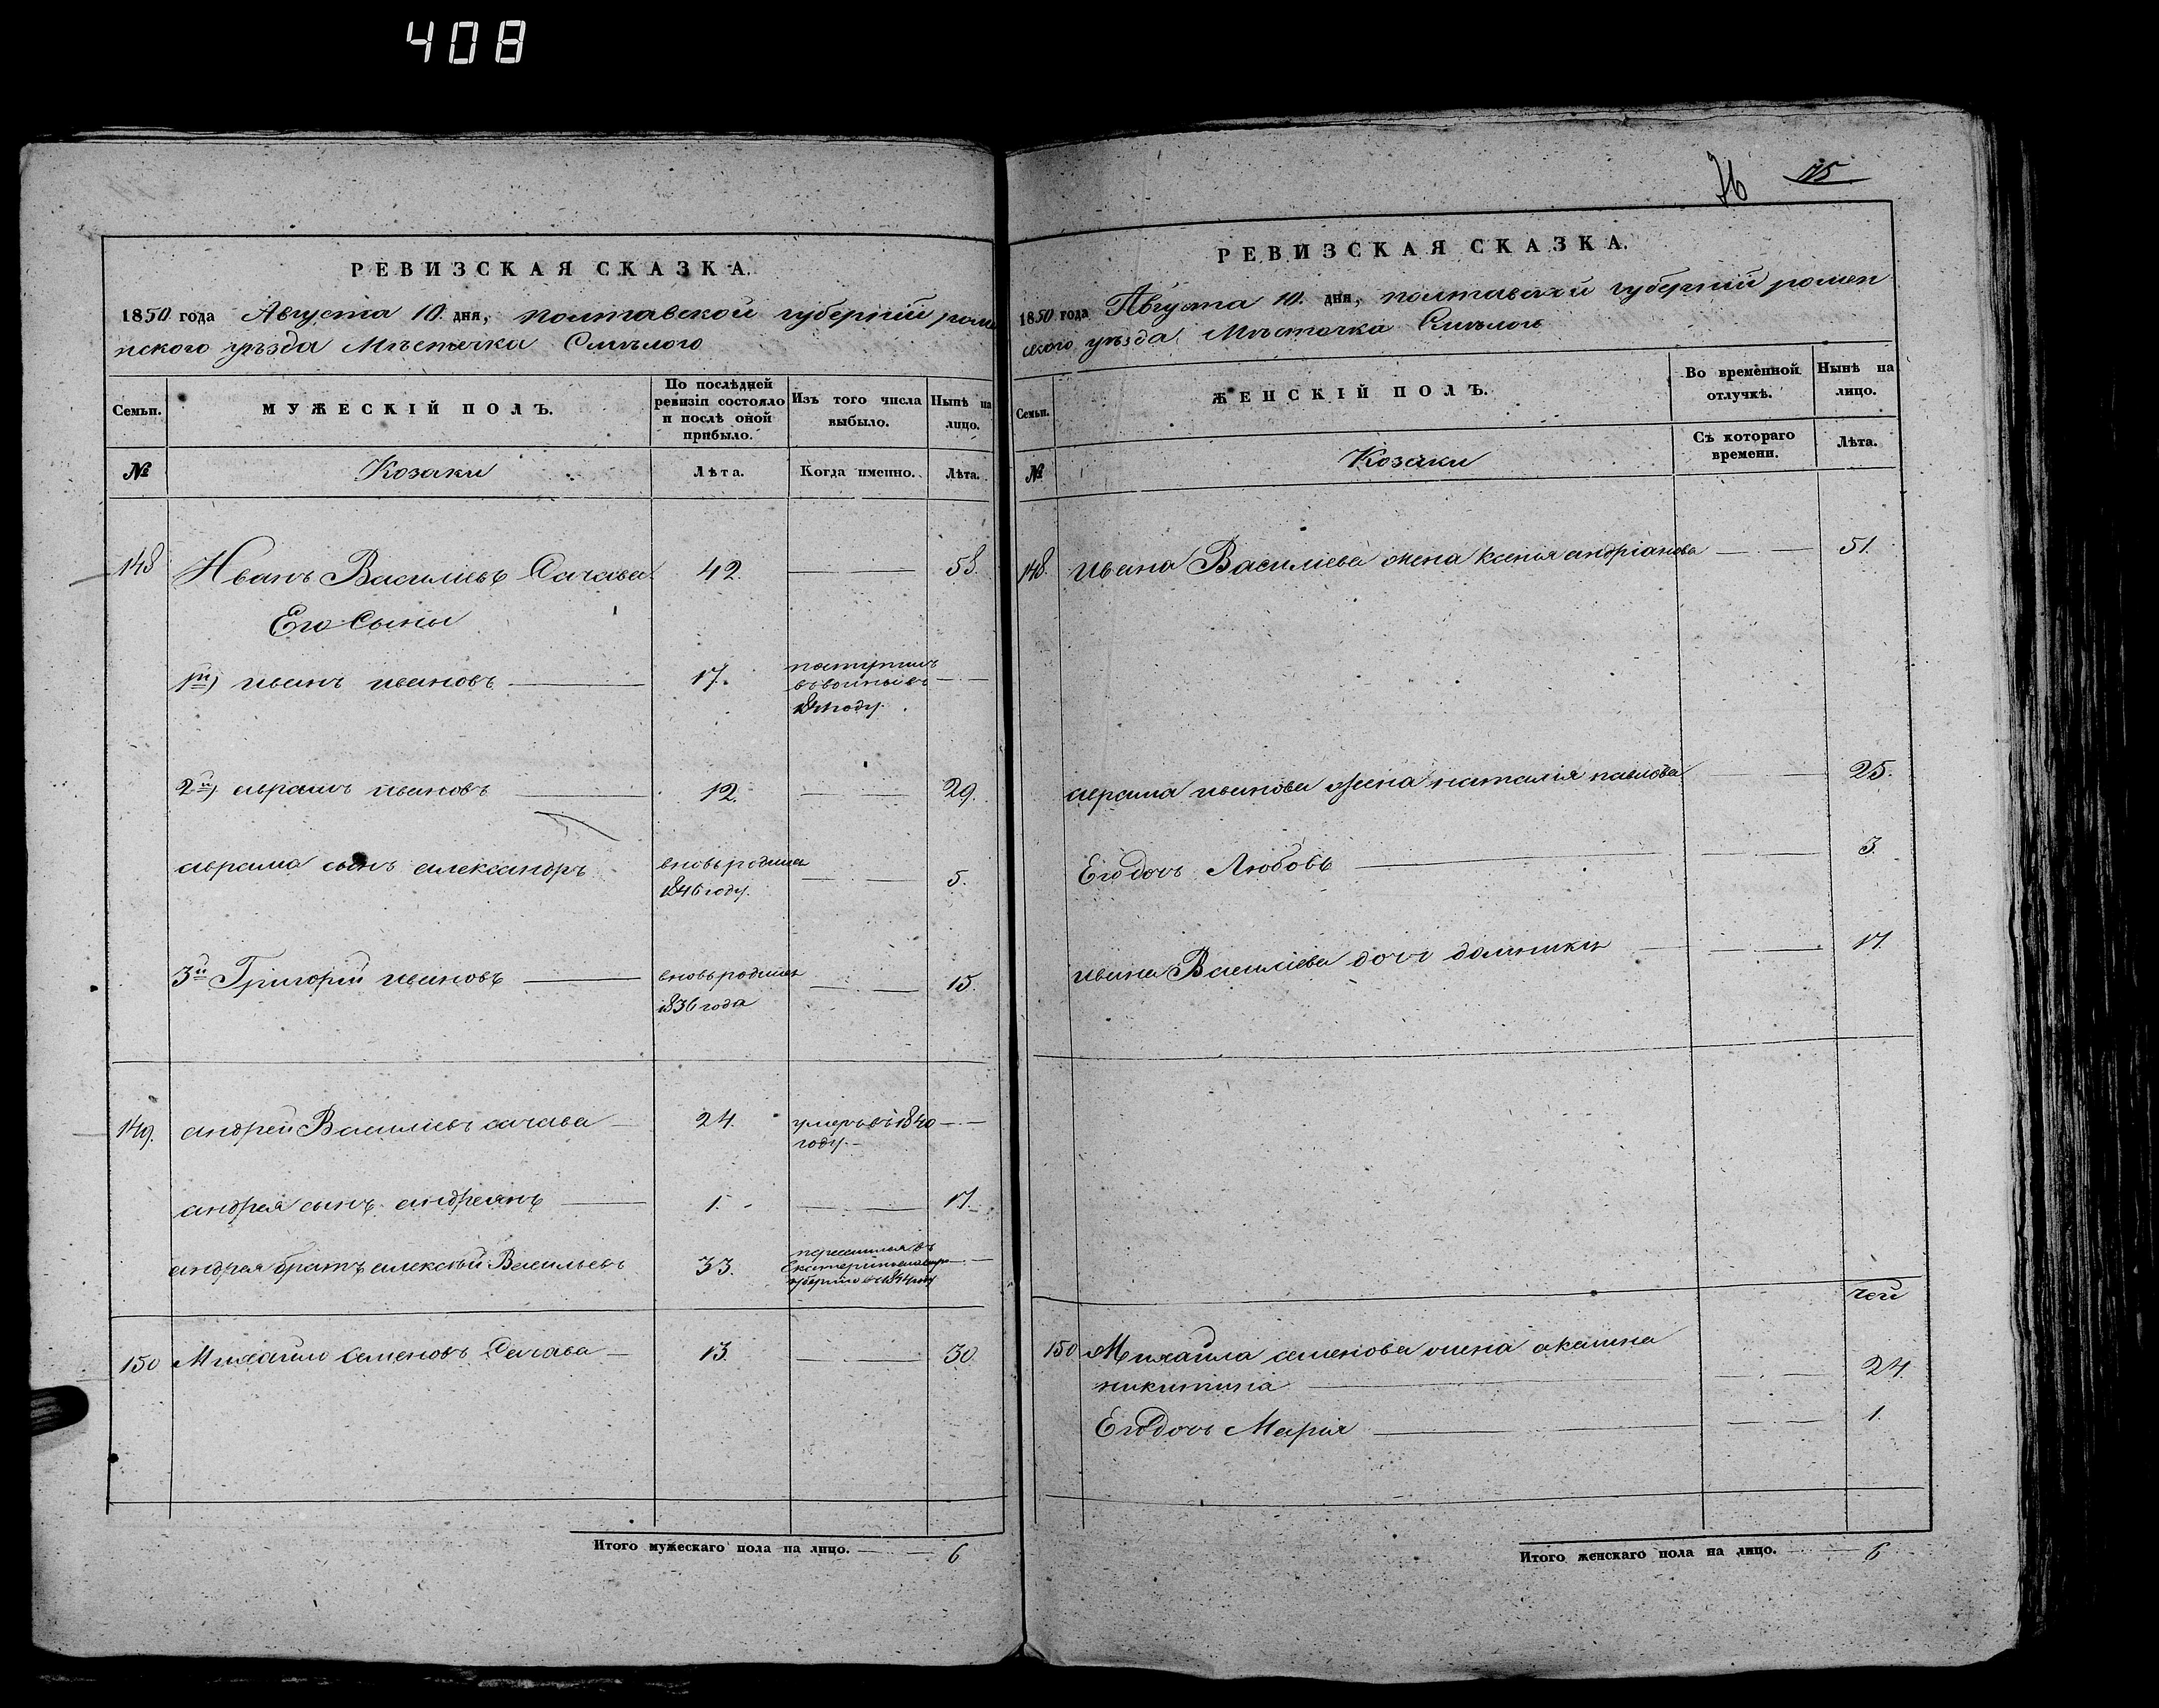 408
РЕВИЗСКАЯ СКАЗКА.
1850 года Августа 10. дня, полтавской губерніи роме
нского уѣзда Мѣстечка Смѣлого
Семьи.
МУЖЕСКІЙ ПОЛЪ.
По послѣдней ревизіи состояло и послѣ оной прибыло.
Изъ того числа выбыло.
Нынѣ на лицо.
№
Козаки
Лѣта.
Когда именно.
Лѣта.
148 Иванъ Василиевъ Сачава 42. 58.
Его Сыны
1й) иванъ ивановъ 17. поступилъ
въ
году.
2й) аврамъ ивановъ 12. 29.
аврама сынъ александръ вновьродился
1846 году. 5.
3й Григорий ивановъ вновьродился 15.
1836 года
149. андрей Василиевъ сачава 24. умеръ въ 1840
году.
андрея сынъ андреянъ 1. 17.
андрея братъ алексѣй Васильевъ 33. переселился въ
губернию
150 Михайло Семеновъ Сачава 13. 30
Итого мужескаго пола на лицо. 6
76 75
РЕВИЗСКАЯ СКАЗКА.
1850 года Августа 10. дня, полтавской губерний ромен
ского уѣзда Мѣстечка Смѣлого
Семьи.
ЖЕНСКІЙ ПОЛЪ.
Во временной отлучкѣ.
Нынѣ на лицо.
№
Козаки
Съ котораго времени.
Лѣта.
148. ивана Василиева жена ксенья андріанова 51.
аврама иванова жена наталія павлова 25.
Его дочь Любовь 3.
ивана Василиева дочь домникия 17.
150 Михаила семенова жена акилина
никитина 24.
Его дочь Мария 1.
Итого женскаго пола на лицо. 6